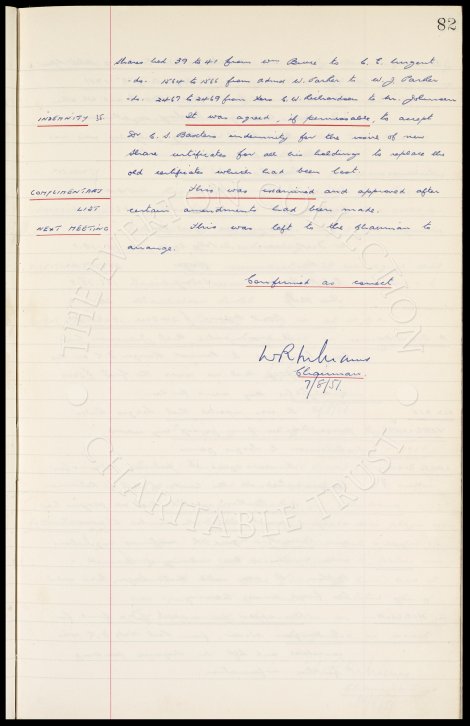 82
Shares Nos 39 to 41 from Wm Buire to C. E. Sargent
-do- 1564 to 1566 from Admd W. Parker to W. J. Parker
-do- 2467 to 2469 from C. W. Richardson to Johnson
INDEMNITY It was agreed, if permissable, to accept
Dr C. S. Baxters indemnity for the issue of new
share certificates for all his holdings to replace the
old certificates which had been lost
COMPLIMENTARY This was examined and approved after
LIST certain amendments had been made.
NEXT MEETING This was left to the Chairman to
arrange.
Confirmed as correct
W R Williams
Chairman.
7/8/51.
THE EVERTON COLLECTION
CHARITABLE TRUST